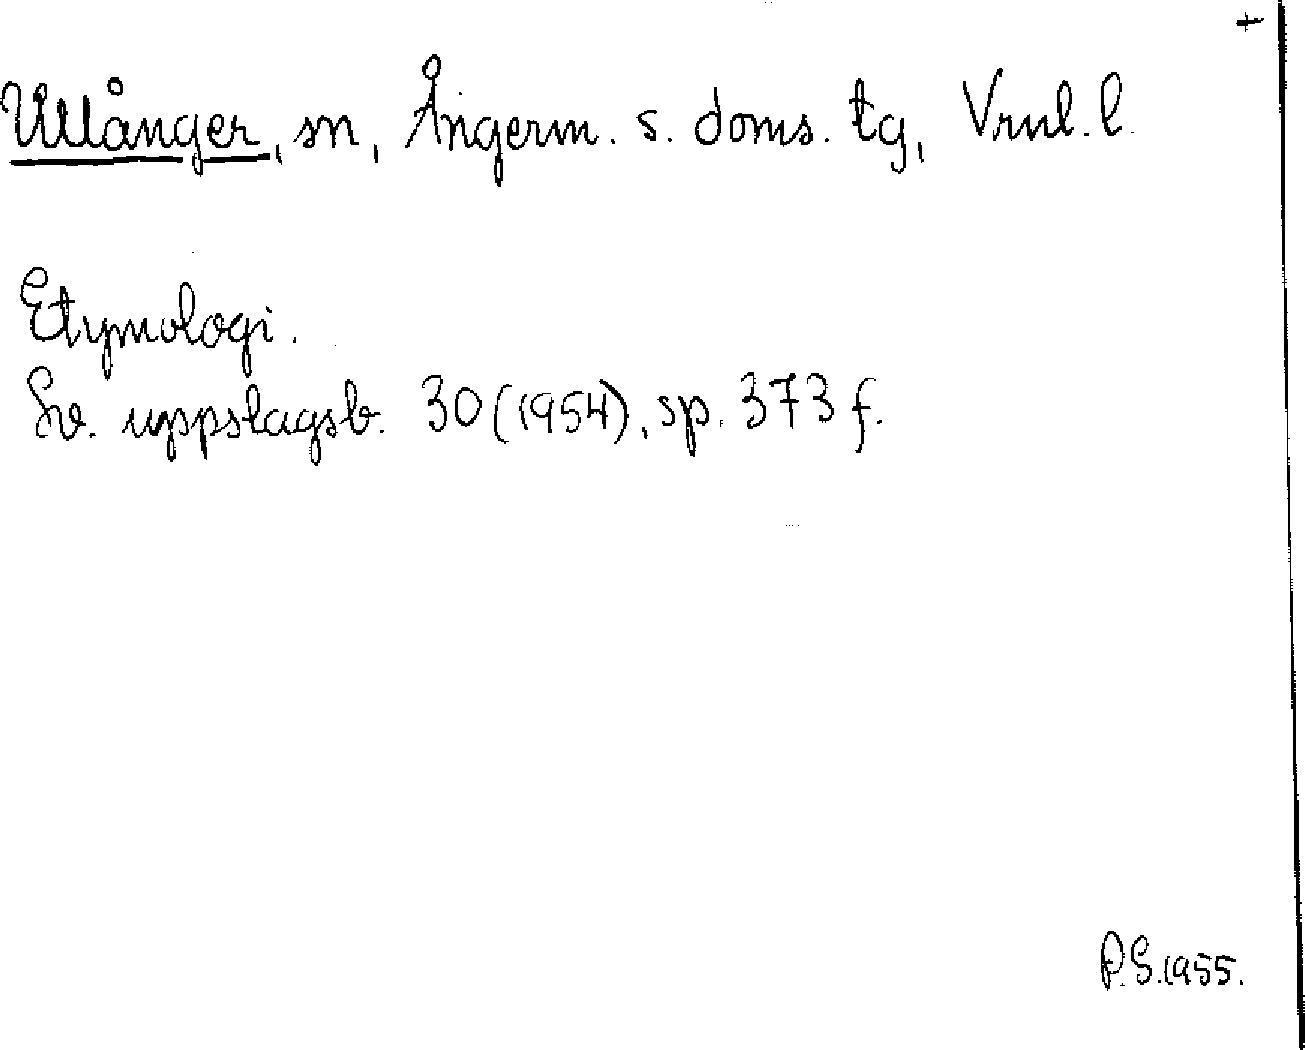 +
Ullånger, sn, Ångerm. s. doms. tg, Vrnl. l.
Etymologi.
Sv. uppslagsb. 30 (1954), sp. 373 f.
P.S. 1955.